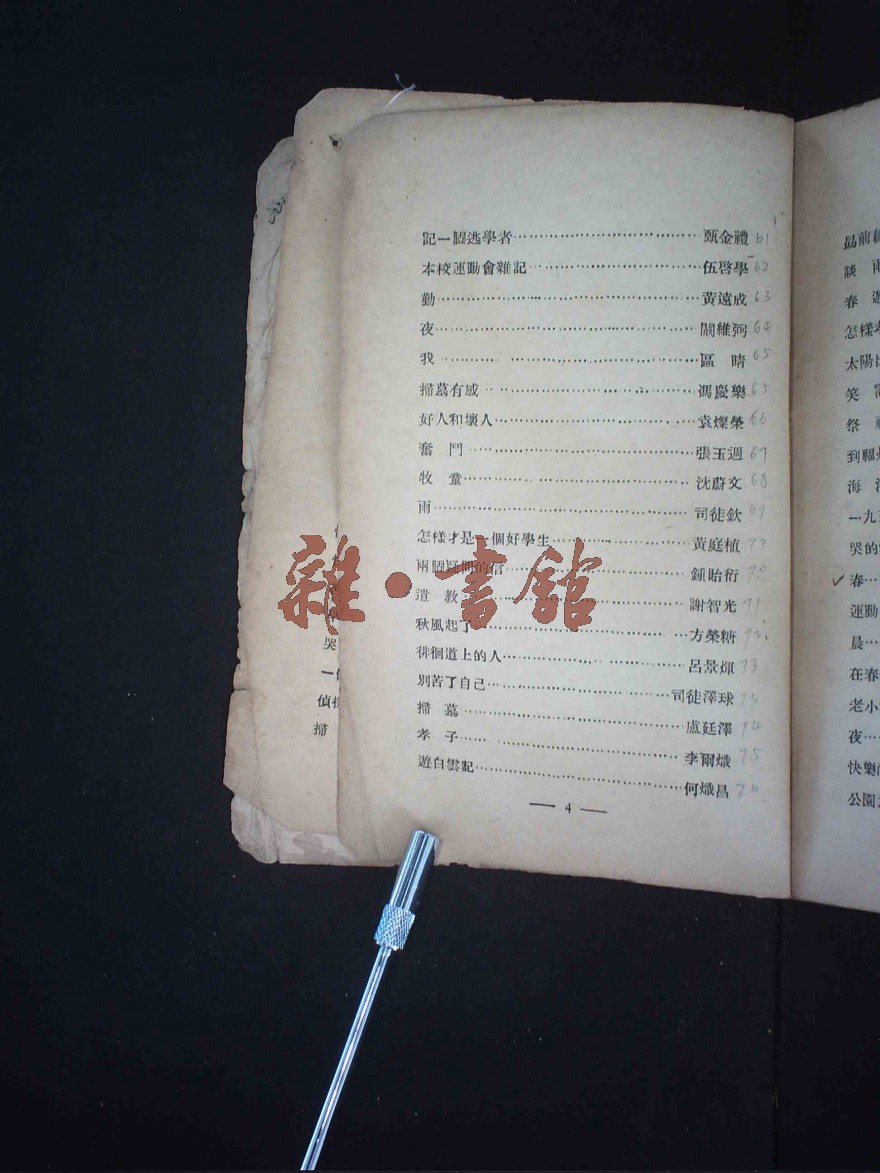 記一個逃學者……甄金禮 61
本校運動會雜記……伍啓學 62
勤……黃遠成 63
夜……關維弼 64
我……區　晴 65
掃墓有感……馮慶樂 65
好人和壞人……袁燦榮 66
奮　鬥……張玉週 67
牧　童……沈蔚文 68
雨……司徒欽 69
怎樣才是一個好學生……黃庭植 70
兩個疑問的信……鍾貽衍 70
遣　敎……謝智光 71
秋風起了……方榮糖 72
徘徊道上的人……呂景煇 73
別苦了自己……司徒澤球 73
掃　墓……盧廷澤 74
孝　子……李爾熾 75
遊白雲記……何熾昌 76
— 4 —
雜·書館
哭
一
偵
掃
最前
談　雨
春　遊
怎樣
太陽
笑
祭
到福
海
一九
哭的
✓春…
運動
晨…
在春
老小
夜…
快樂
公園